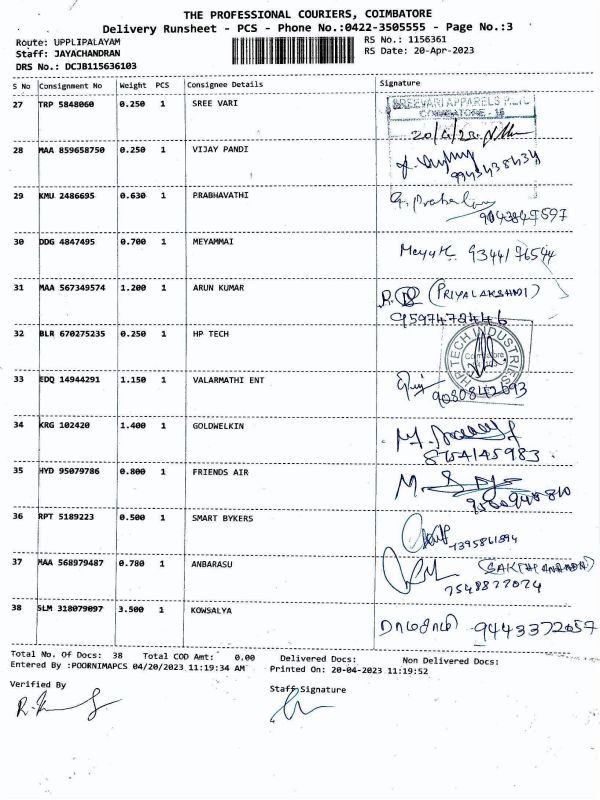 THE PROFESSIONAL COURIERS, COIMBATORE
Delivery Runsheet - PCS - Phone No.:0422-3505555 - Page No.:3
Route: UPPLIPALAYAM
RS No.: 1156361
Staff: JAYACHANDRAN
RS Date: 20-Apr-2023
DRS No.: DCJB115636103
S No Consignment No Weight PCS Consignee Details Signature
27 TRP 5848060 0.250 1 SREE VARI
SREEVARI APPARELS
COIMBATORE - 15
20/4/23
28 MAA 859658750 0.250 1 VIJAY PANDI
9943438434
29 KMU 2486695 0.630 1 PRABHAVATHI
9043847597
30 DDG 4847495 0.700 1 MEYAMMAI
9344176544
31 MAA 567349574 1.200 1 ARUN KUMAR
(PRIYALAKSHMI)
32 BLR 670275235 0.250 1 HP TECH
HP TECH INDUSTRIES
33 EDQ 14944291 1.150 1 VALARMATHI ENT
9080842693
34 KRG 102420 1.400 1 GOLDWELKIN
8754145983
35 HYD 95079786 0.800 1 FRIENDS AIR
36 RPT 5189223 0.500 1 SMART BYKERS
37 MAA 568979487 0.780 1 ANBARASU
38 SLM 318079097 3.500 1 KOWSALYA
9443372057
Total No. Of Docs: 38 Total COD Amt: 0.00 Delivered Docs: Non Delivered Docs:
Entered By :POORNIMAPCS 04/20/2023 11:19:34 AM Printed On: 20-04-2023 11:19:52
Verified By
Staff Signature